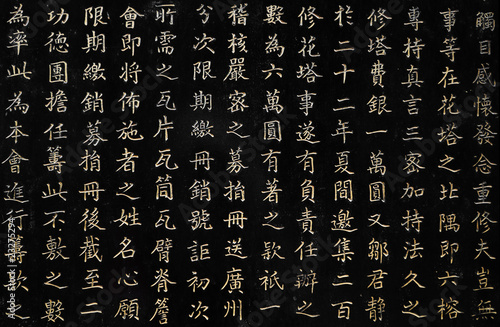 觸目感懷發念重修夫豈無
事等在花塔之北隅即六榕
專持真言三密加持法久之
修塔費銀一萬圓又鄒君静
於二十二年夏間邀集二百
修花塔事遂有負責任辦之
數為六萬圓有著之款祇一
稽核嚴密之募捐冊送廣州
分次限期繳冊銷號詎初次
所需之瓦片瓦筒瓦臂脊簷
會即將佈施者之姓名心願
限期繳銷募捐冊後截至二
功德團擔任籌此不敷之數
為率此為本會進行籌欵之